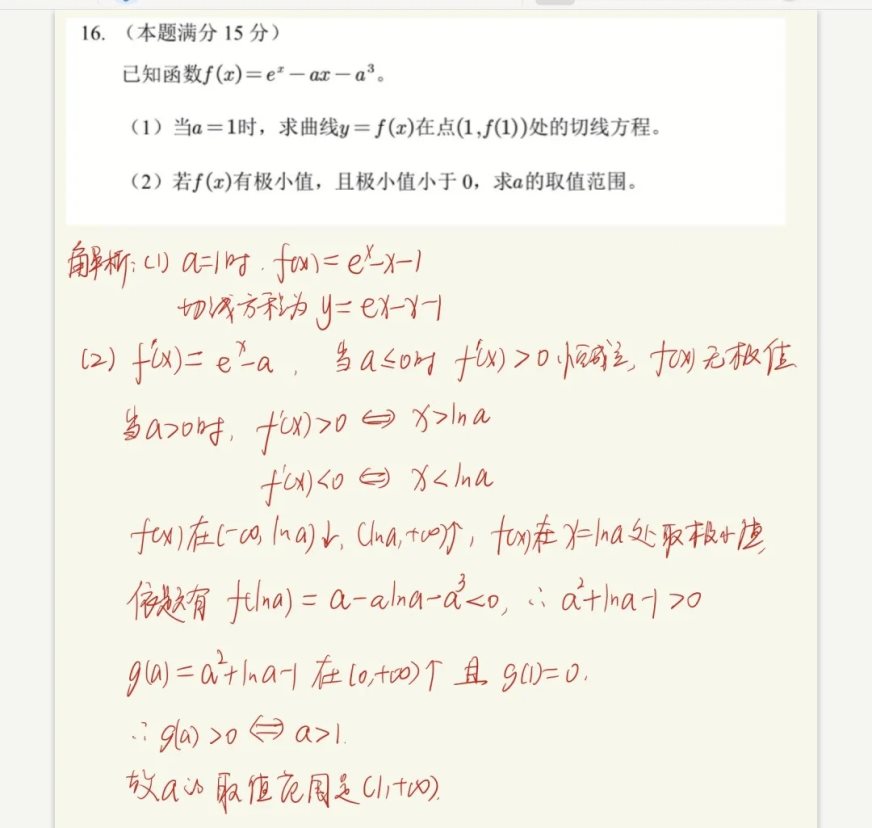 16. （本题满分 15 分）
已知函数f(x)=eˣ－ax－a³。
（1）当a=1时，求曲线y=f(x)在点(1,f(1))处的切线方程。
（2）若f(x)有极小值，且极小值小于 0，求a的取值范围。
解析: (1) a=1时. f(x)=eˣ-x-1
切线方程为 y=ex-x-1
(2) f'(x)=eˣ-a , 当a≤0时 f'(x)>0恒成立, f(x)无极值
当a>0时, f'(x)>0 ⇔ x>lna
f'(x)<0 ⇔ x<lna
f(x)在(-∞, lna)↓, (lna,+∞)↑, f(x)在x=lna处取极小值,
依题有 f(lna)=a-alna-a³<0, ∴ a²+lna-1>0
g(a)=a²+lna-1 在(0,+∞)↑ 且 g(1)=0.
∴ g(a)>0 ⇔ a>1.
故a的取值范围是(1,+∞).